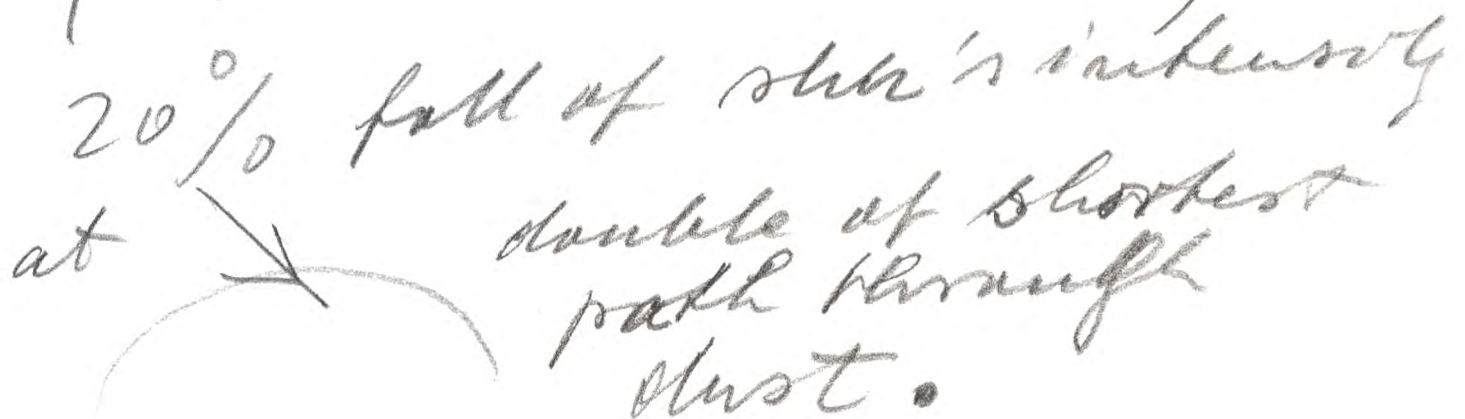 20% fall of sun's intensity
at double of shortest
path through
dust.